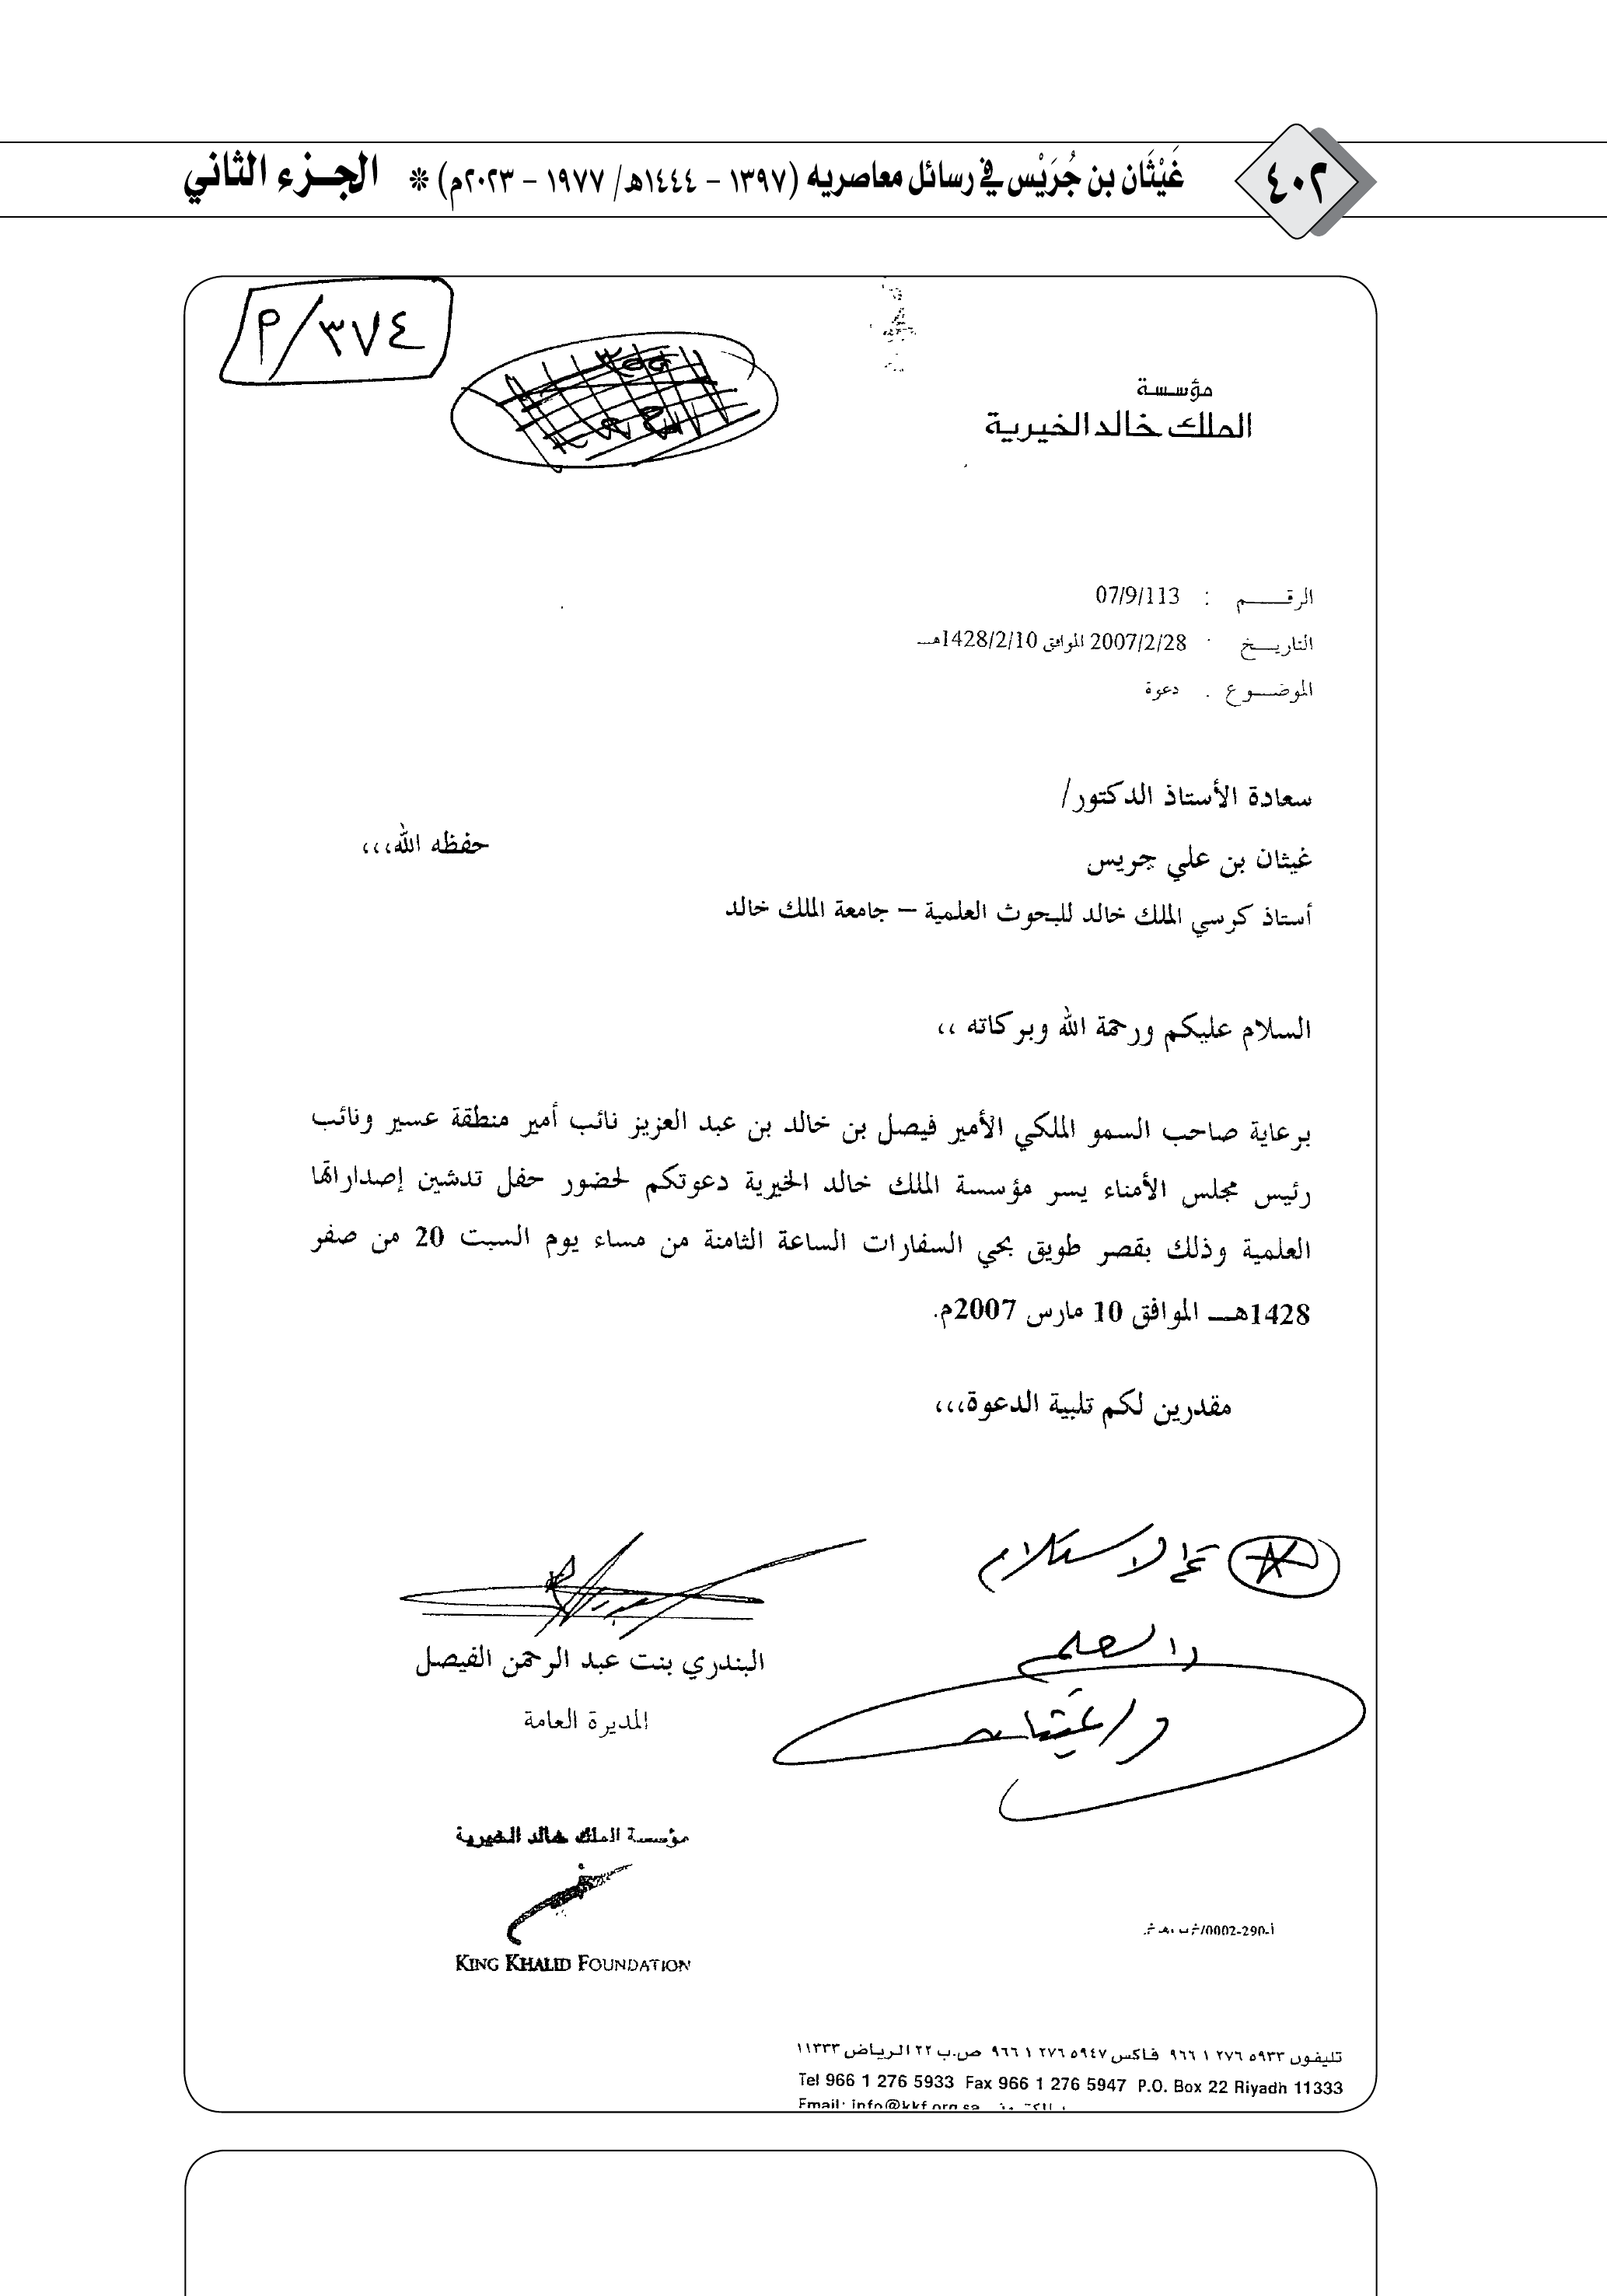 ٤٠٢
غَيْثَان بن جُرَيْس في رسائل معاصريه (١٣٩٧ - ١٤٤٤هـ/ ١٩٧٧ - ٢٠٢٣م) * الجـزء الثاني
٣٧٤/م
مؤسسة
الملك خالد الخيرية
الرقـــم : 07/9/113
التاريــخ : 2007/2/28 الموافق 1428/2/10هـــ
الموضــوع . دعوة
سعادة الأستاذ الدكتور/
غيثان بن علي جريس حفظه الله،،،
أستاذ كرسي الملك خالد للبحوث العلمية – جامعة الملك خالد
السلام عليكم ورحمة الله وبركاته ،،
برعاية صاحب السمو الملكي الأمير فيصل بن خالد بن عبد العزيز نائب أمير منطقة عسير ونائب
رئيس مجلس الأمناء يسر مؤسسة الملك خالد الخيرية دعوتكم لحضور حفل تدشين إصداراتها
العلمية وذلك بقصر طويق بحي السفارات الساعة الثامنة من مساء يوم السبت 20 من صفر
1428هـــ الموافق 10 مارس 2007م.
مقدرين لكم تلبية الدعوة،،،
الاستلام
البندري بنت عبد الرحمن الفيصل
المديرة العامة
د/غيثان
مؤسسة الملك خالد الخيرية
KING KHALID FOUNDATION
أ-290-0002/
تليفون ٥٩٣٣ ٢٧٦ ١ ٩٦٦ فاكس ٥٩٤٧ ٢٧٦ ١ ٩٦٦ ص.ب ٢٢ الرياض ١١٣٣٣
Tel 966 1 276 5933 Fax 966 1 276 5947 P.O. Box 22 Riyadh 11333
Email: info@kkf.org.sa